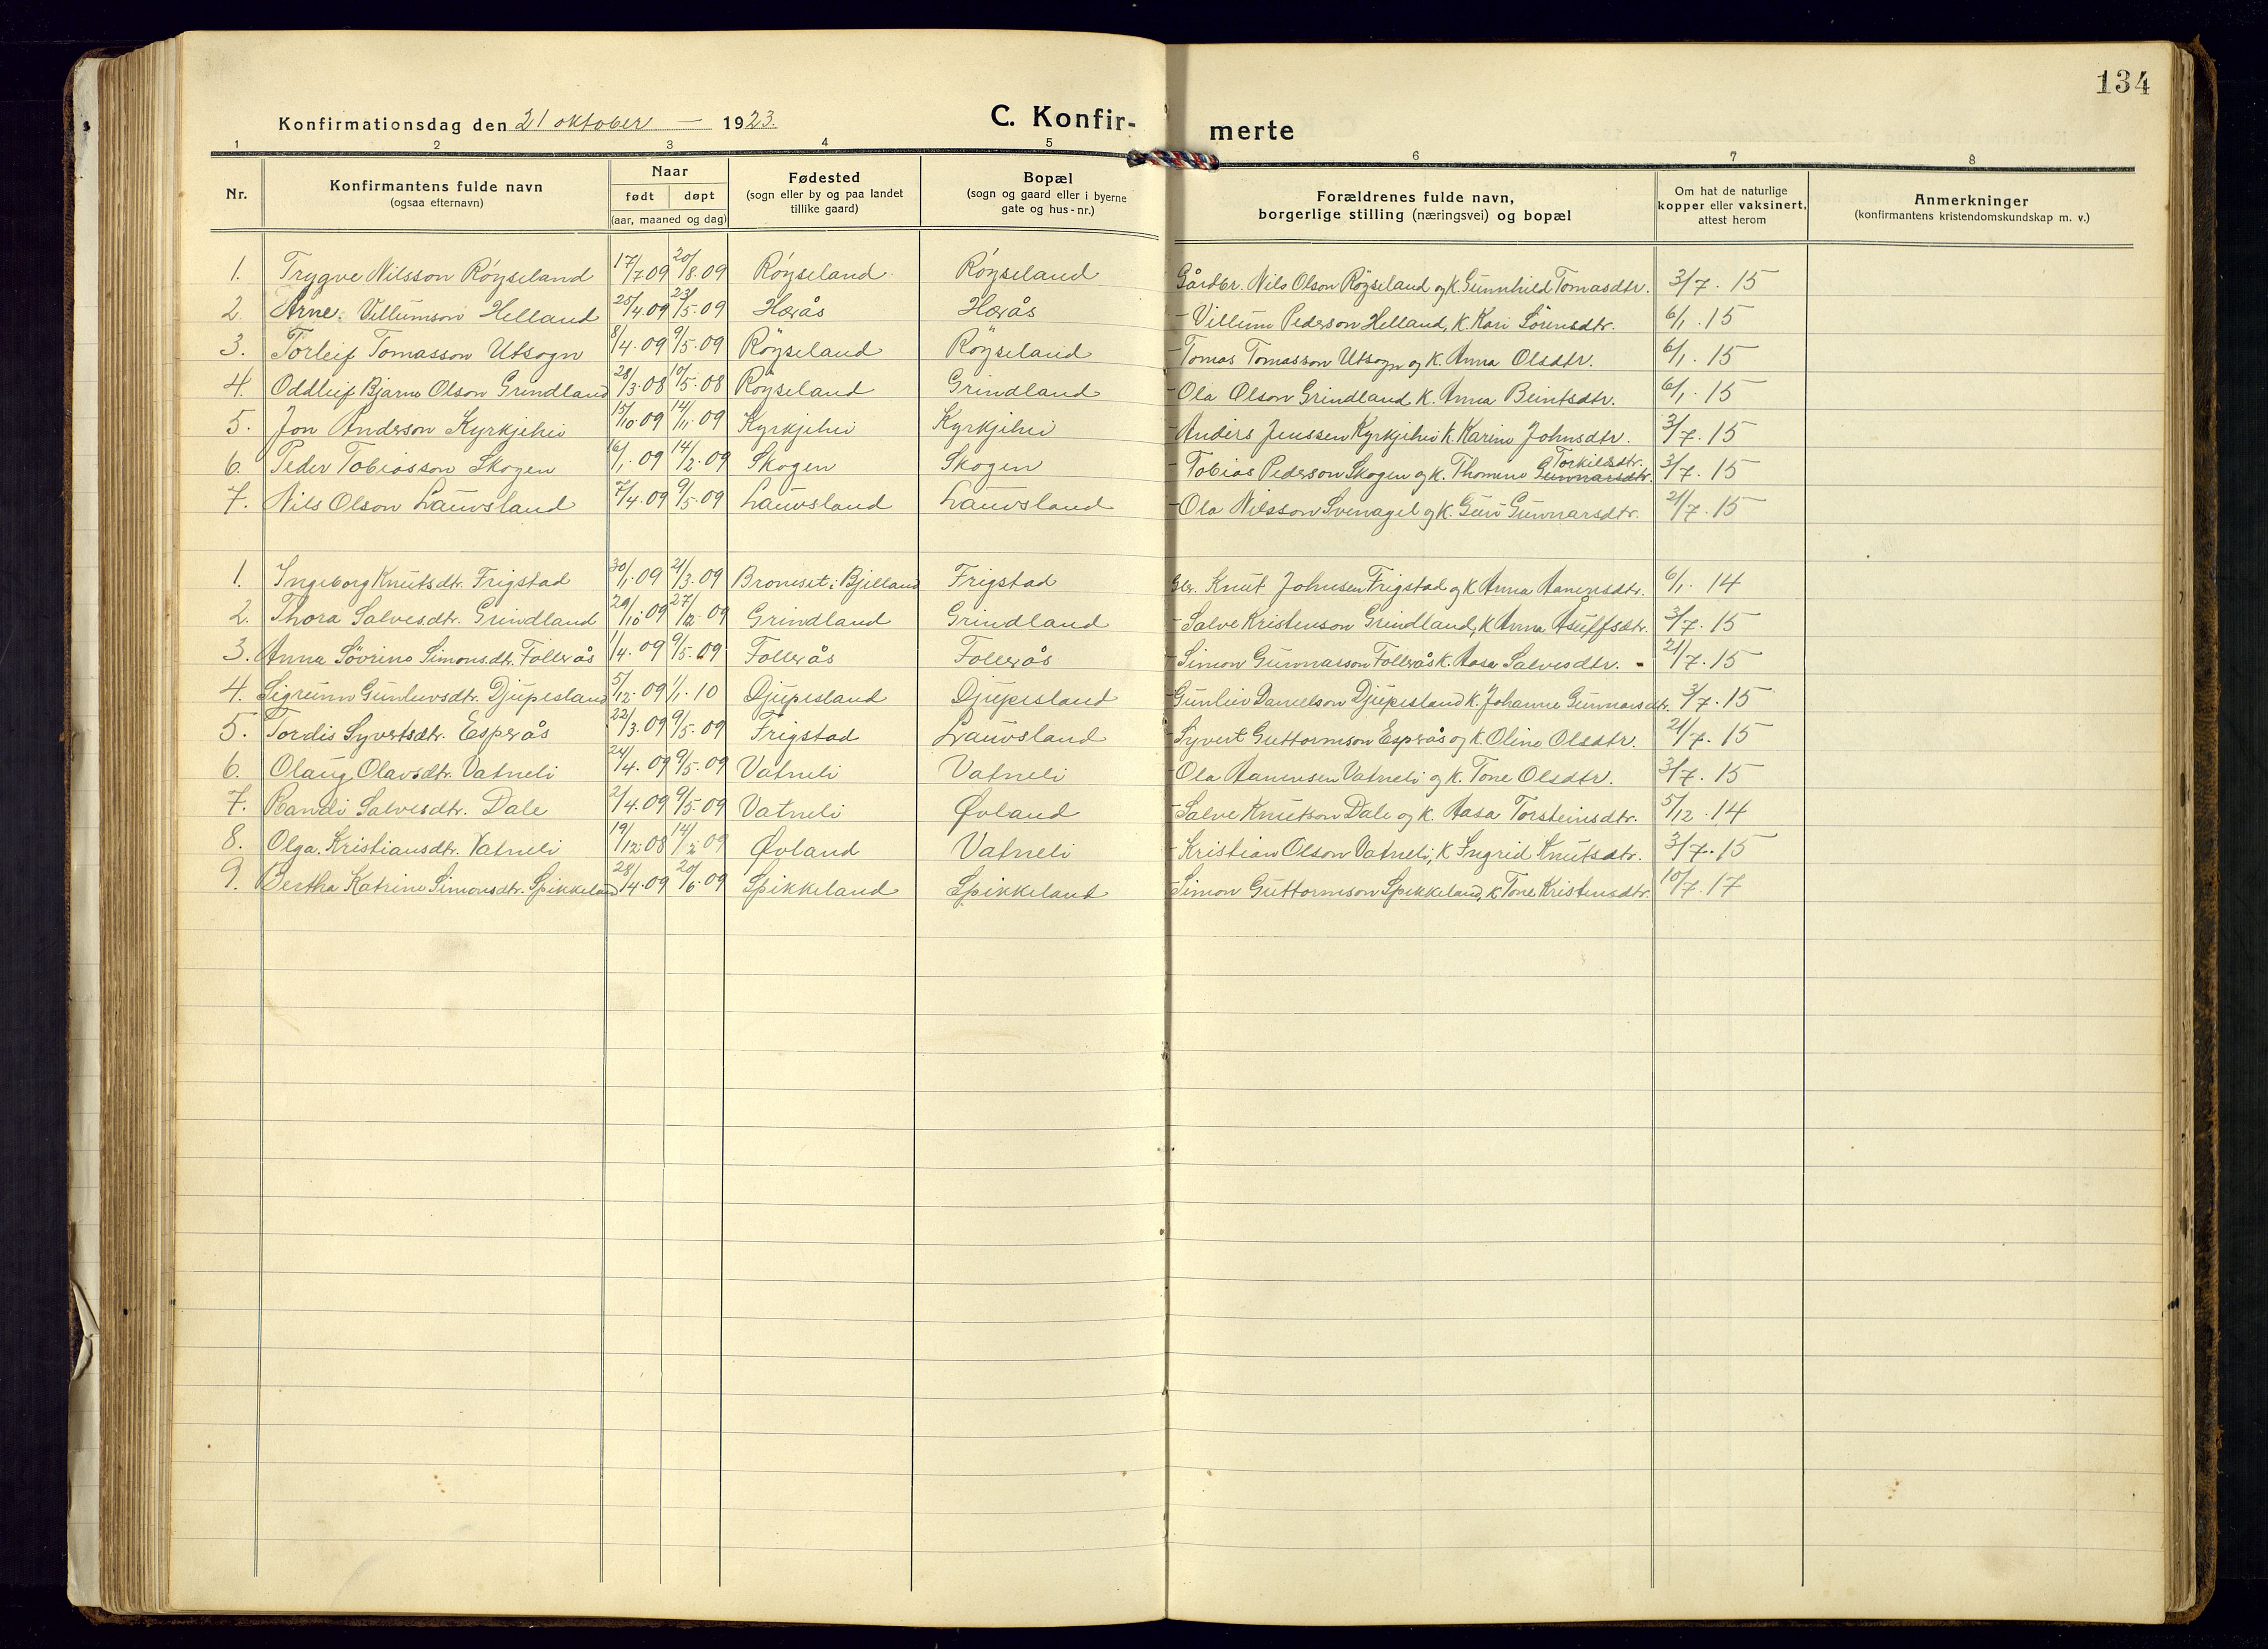 134
Konfirmationsdag den 21 oktober — 1923. C. Konfir- merte
1 2 3 4 5 6 7 8
Nr. Konfirmantens fulde navn (ogsaa efternavn) Naar født døpt (aar, maaned og dag) Fødested (sogn eller by og paa landet tillike gaard) Bopæl (sogn og gaard eller i byerne gate og hus-nr.) Forældrenes fulde navn, borgerlige stilling (næringsvei) og bopæl Om hat de naturlige kopper eller vaksinert, attest herom Anmerkninger (konfirmantens kristendomskundskap m. v.)
1. Trygve Nilsson Röyseland 17/7 09 20/8. 09 Röyseland Röyseland Gårdbr. Nils Olson Röyseland og k. Gunnhild Tomasdtr. 3/7. 15
2. Arne Villumson Helland 25/4. 09 23/5. 09 Harås Harås - Villum Pederson Helland, k. Kari Sörensdtr. 6/1. 15
3. Torleif Tomasson Utsogn 8/4. 09 9/5. 09 Röyseland Röyseland - Tomas Tomasson Utsogn og k. Anna Olsdtr. 6/1. 15
4. Oddleif Bjarne Olson Grindland 28/3. 08 10/5. 08 Röyseland Grindland - Ola Olson Grindland k. Anna Beintsdtr. 6/1. 15
5. Jon Anderson Kyrkjehei 15/10. 09 14/11. 09 Kyrkjehei Kyrkjehei - Anders Jenssen Kyrkjehei k. Karine Johnsdtr. 3/7. 15
6. Peder Tobiasson Skogen 6/1. 09 14/2. 09 Skogen Skogen - Tobias Pederson Skogen og k. Thomine Gunnarsdtr. Torkilsdtr. 3/7. 15
7. Nils Olson Lauvsland 7/4. 09 9/5. 09 Lauvsland Lauvsland - Ola Nilsson Svenagel og k. Guri Gunnarsdtr. 21/7. 15
1. Ingeborg Knutsdtr. Frigstad 30/1. 09 21/3. 09 Bromset i Bjelland Frigstad Gbr. Knut Johnsen Frigstad og k. Anna Aanensdtr. 6/1. 14
2. Thora Salvesdtr. Grindland 29/10 09 27/12. 09 Grindland Grindland - Salve Kristenson Grindland, k. Anna Asulfsdtr. 3/7. 15
3. Anna Sövrine Simonsdtr. Follerås 1/4. 09 9/5. 09 Follerås Follerås - Simon Gunnarson Follerås k. Aasa Salvesdtr. 21/7. 15
4. Sigrunn Gunlevsdtr. Djupesland 5/12. 09 1/1. 10 Djupesland Djupesland - Gunleiv Danielson Djupesland k. Johanne Gunnarsdtr. 3/7. 15
5. Tordis Syvertsdtr. Esperås 22/3. 09 9/5. 09 Frigstad Lauvsland - Syvert Guttormson Esperås og k. Oline Olsdtr. 21/7. 15
6. Olaug Olavsdtr. Vatneli 24/4. 09 9/5. 09 Vatneli Vatneli - Ola Aanensen Vatneli og k. Tone Olsdtr. 3/7. 15
7. Randi Salvesdtr. Dale 2/4. 09 9/5. 09 Vatneli Øvland - Salve Knutson Dale og k. Aasa Torsteinsdtr. 5/12. 14
8. Olga Kristiansdtr. Vatneli 19/12 08 14/2 09 Øvland Vatneli - Kristian Olson Vatneli, k. Ingrid Knutsdtr. 3/7. 15
9. Bertha Katrine Simonsdtr. Spikkeland 28/4. 09 20/6. 09 Spikkeland Spikkeland - Simon Guttormson Spikkeland, k. Tone Kristensdtr. 10/7. 17